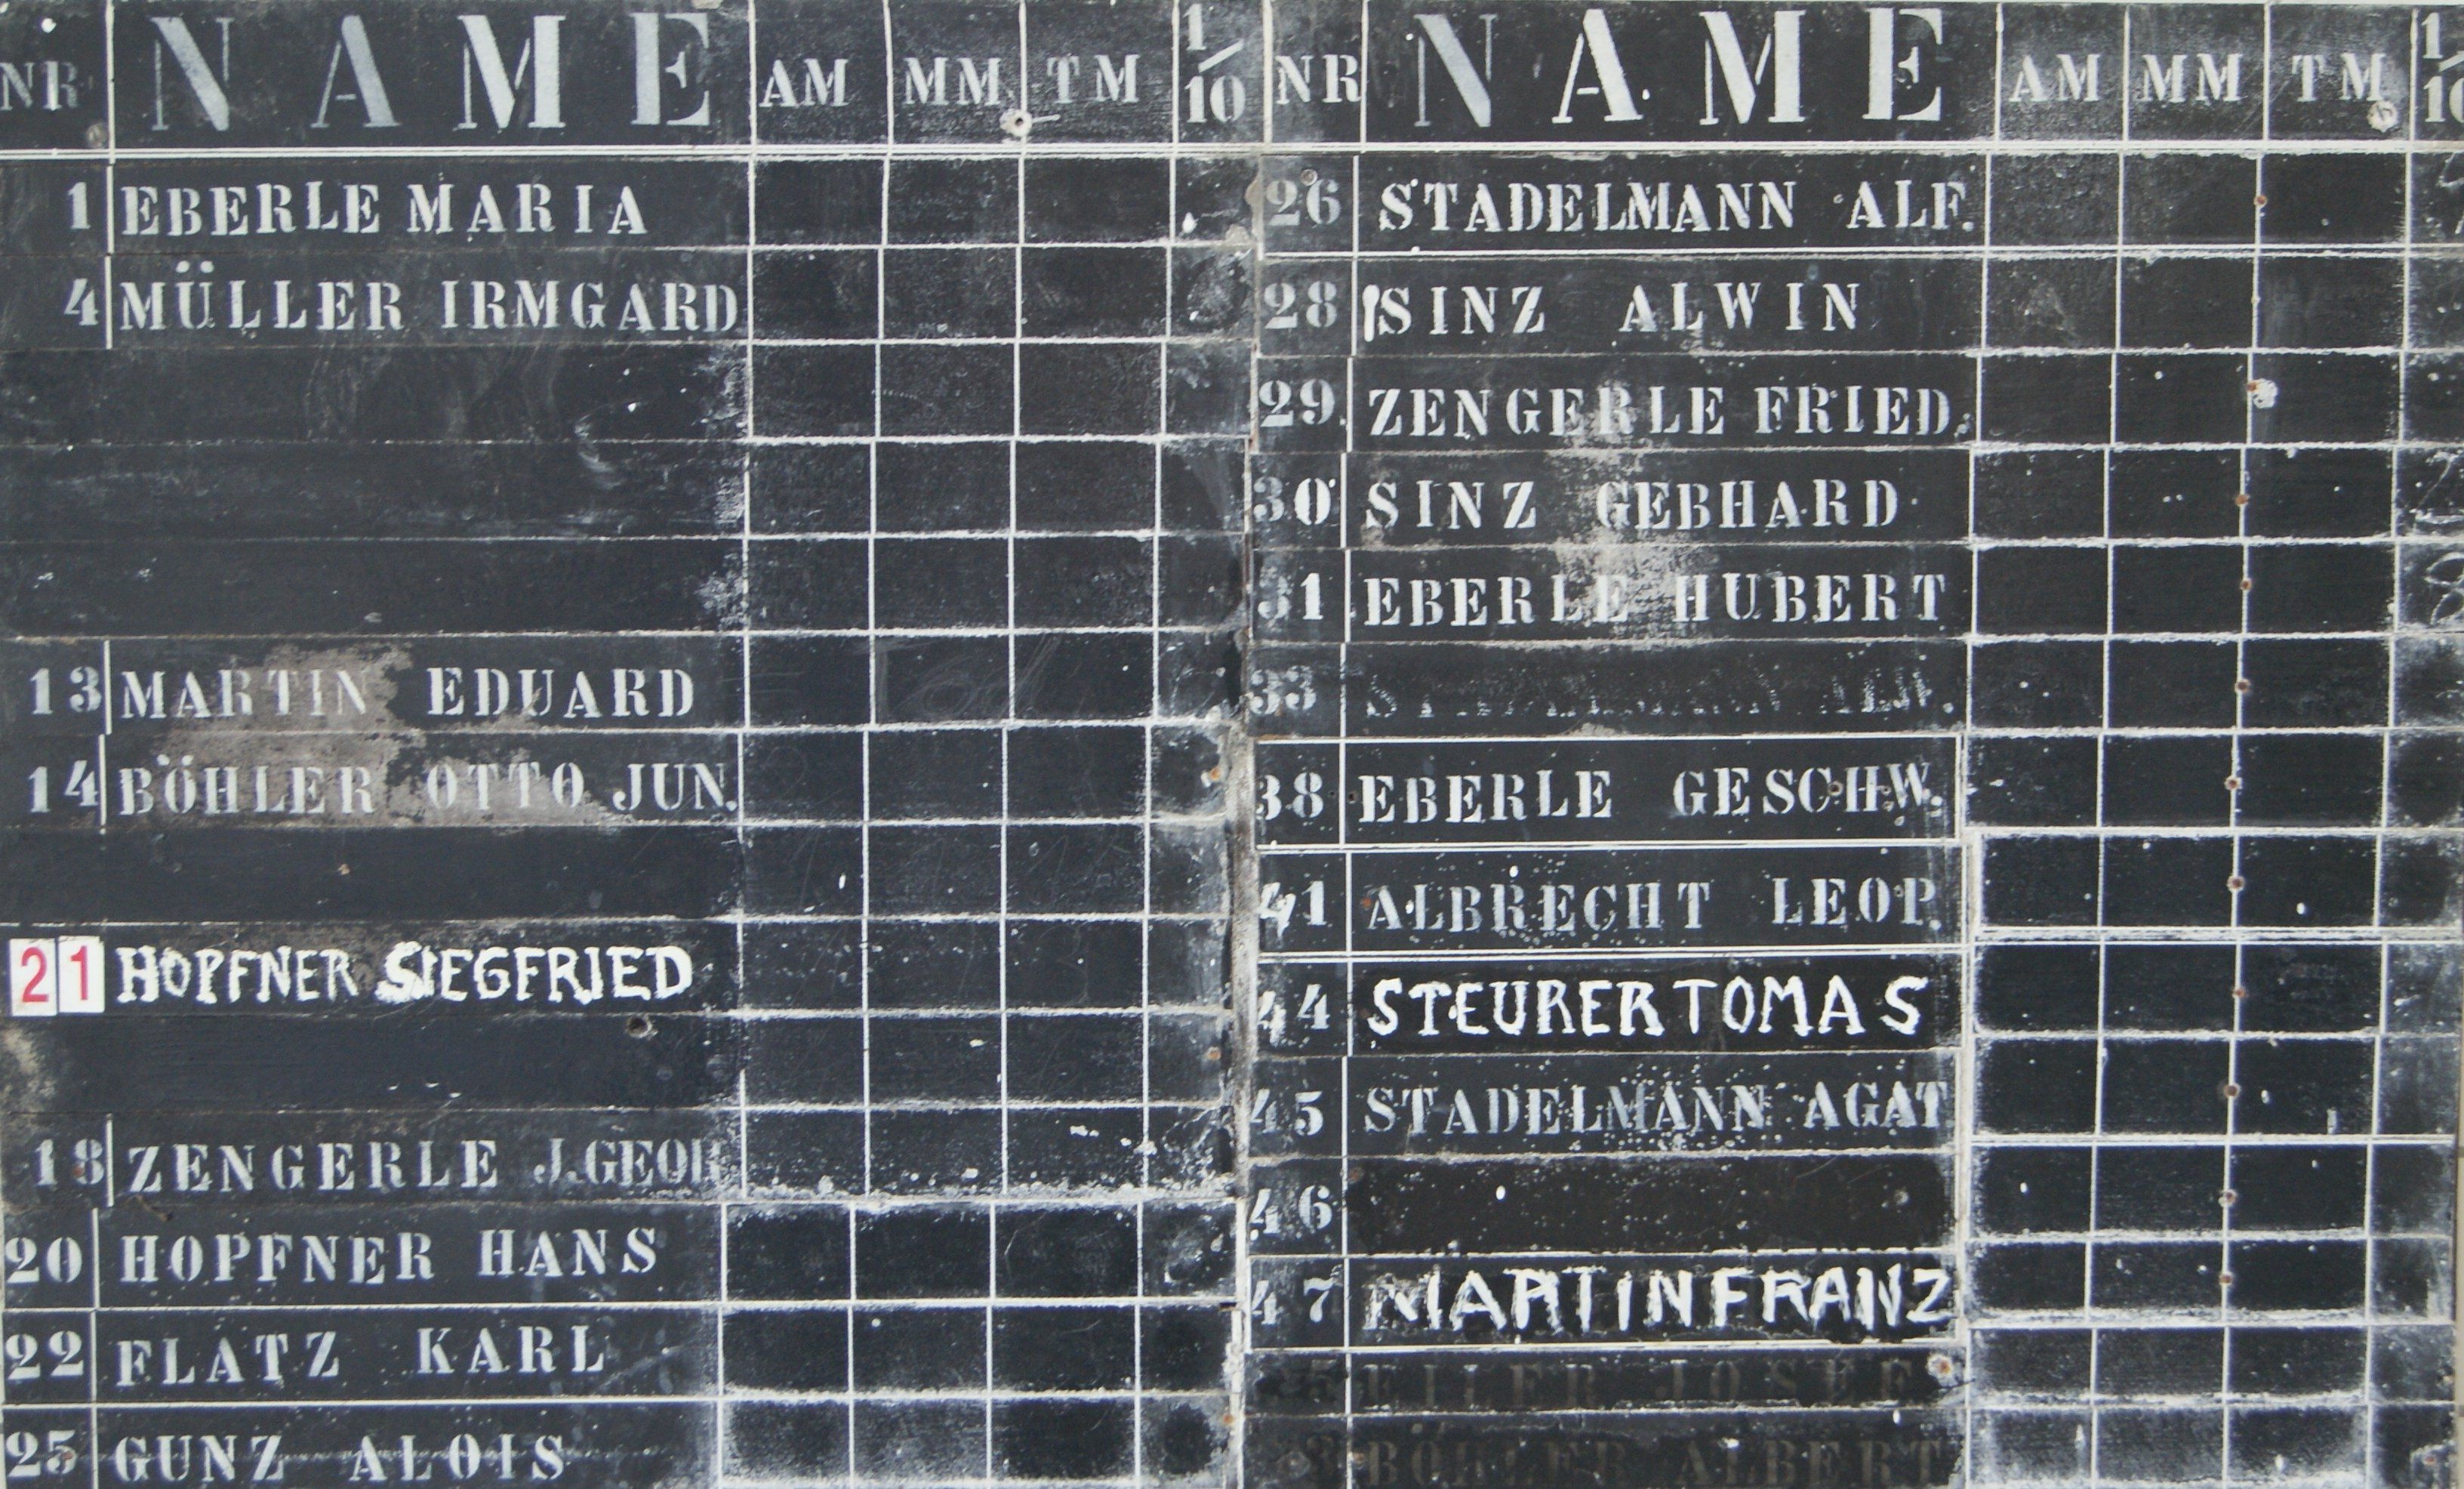 NR NAME AM MM TM 1/10
1 EBERLE MARIA
4 MÜLLER IRMGARD
13 MARTIN EDUARD
14 BÖHLER OTTO JUN.
21 HOPFNER SIEGFRIED
18 ZENGERLE J.GEOR
20 HOPFNER HANS
22 FLATZ KARL
25 GUNZ ALOIS
NR NAME AM MM TM 1/10
26 STADELMANN ALF.
28 SINZ ALWIN
29 ZENGERLE FRIED.
30 SINZ GEBHARD
31 EBERLE HUBERT
33
38 EBERLE GESCHW.
41 ALBRECHT LEOP.
44 STEURER TOMAS
45 STADELMANN AGAT
46
47 MARTIN FRANZ
JOSEF
BÖHLER ALBERT